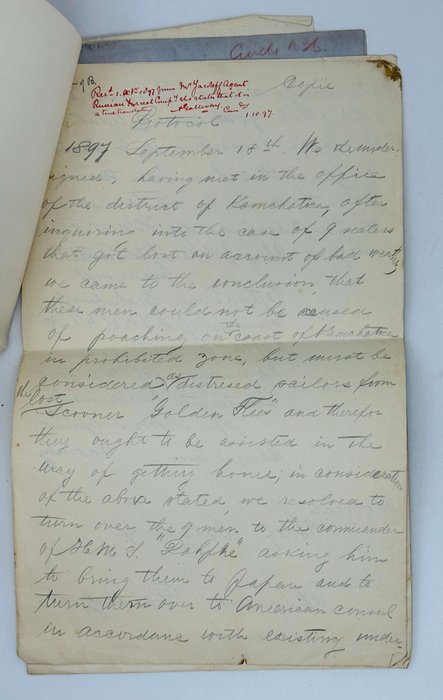 of B.
Rec'd 1. Oct. 1897 from Mr Agent
Russian Foreseal Comp'y who states that it is
a true translation Galloway Com'dr
1.10.97
Copie
Protocol
1897 September 18th We the under-
signed, having met in the office
of the district of Kamchatca, after
inquiring into the case of 9 sealers
that got lost on account of bad weather
we came to the conclusion that
these men could not be acused
of poaching on the coast of Kamchatca
in prohibited zone, but must be
considered as distresed sailors from
this lost
Scooner "Golden Flees" and therefor
they ought to be assisted in the
way of getting home; in consideration
of the above stated we resolved to
turn over the 9 men to the commander
of H. M. S. "Daphne" asking him
to bring them to Japan and to
turn them over to American consul
in accordanc with existing under-